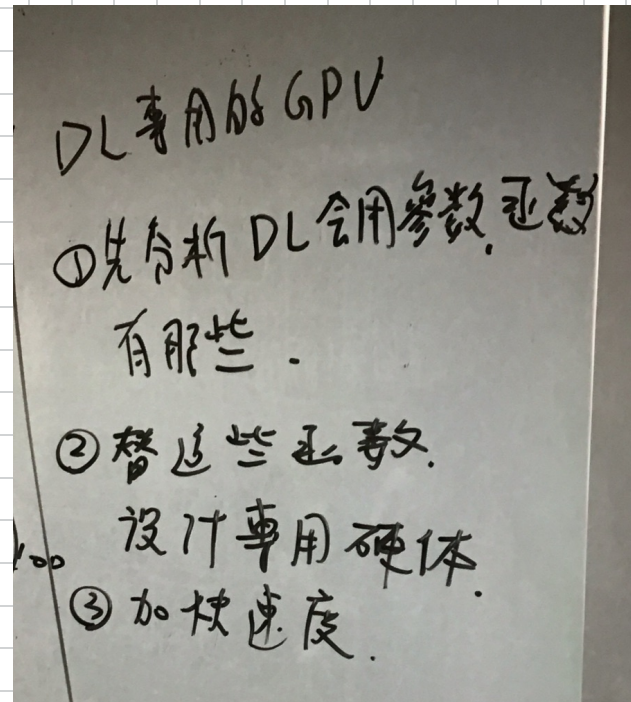 DL專用的GPU
①先分析DL会用參数.函数
有那些.
②替这些函数.
设计專用硬体.
③加快速度.
100